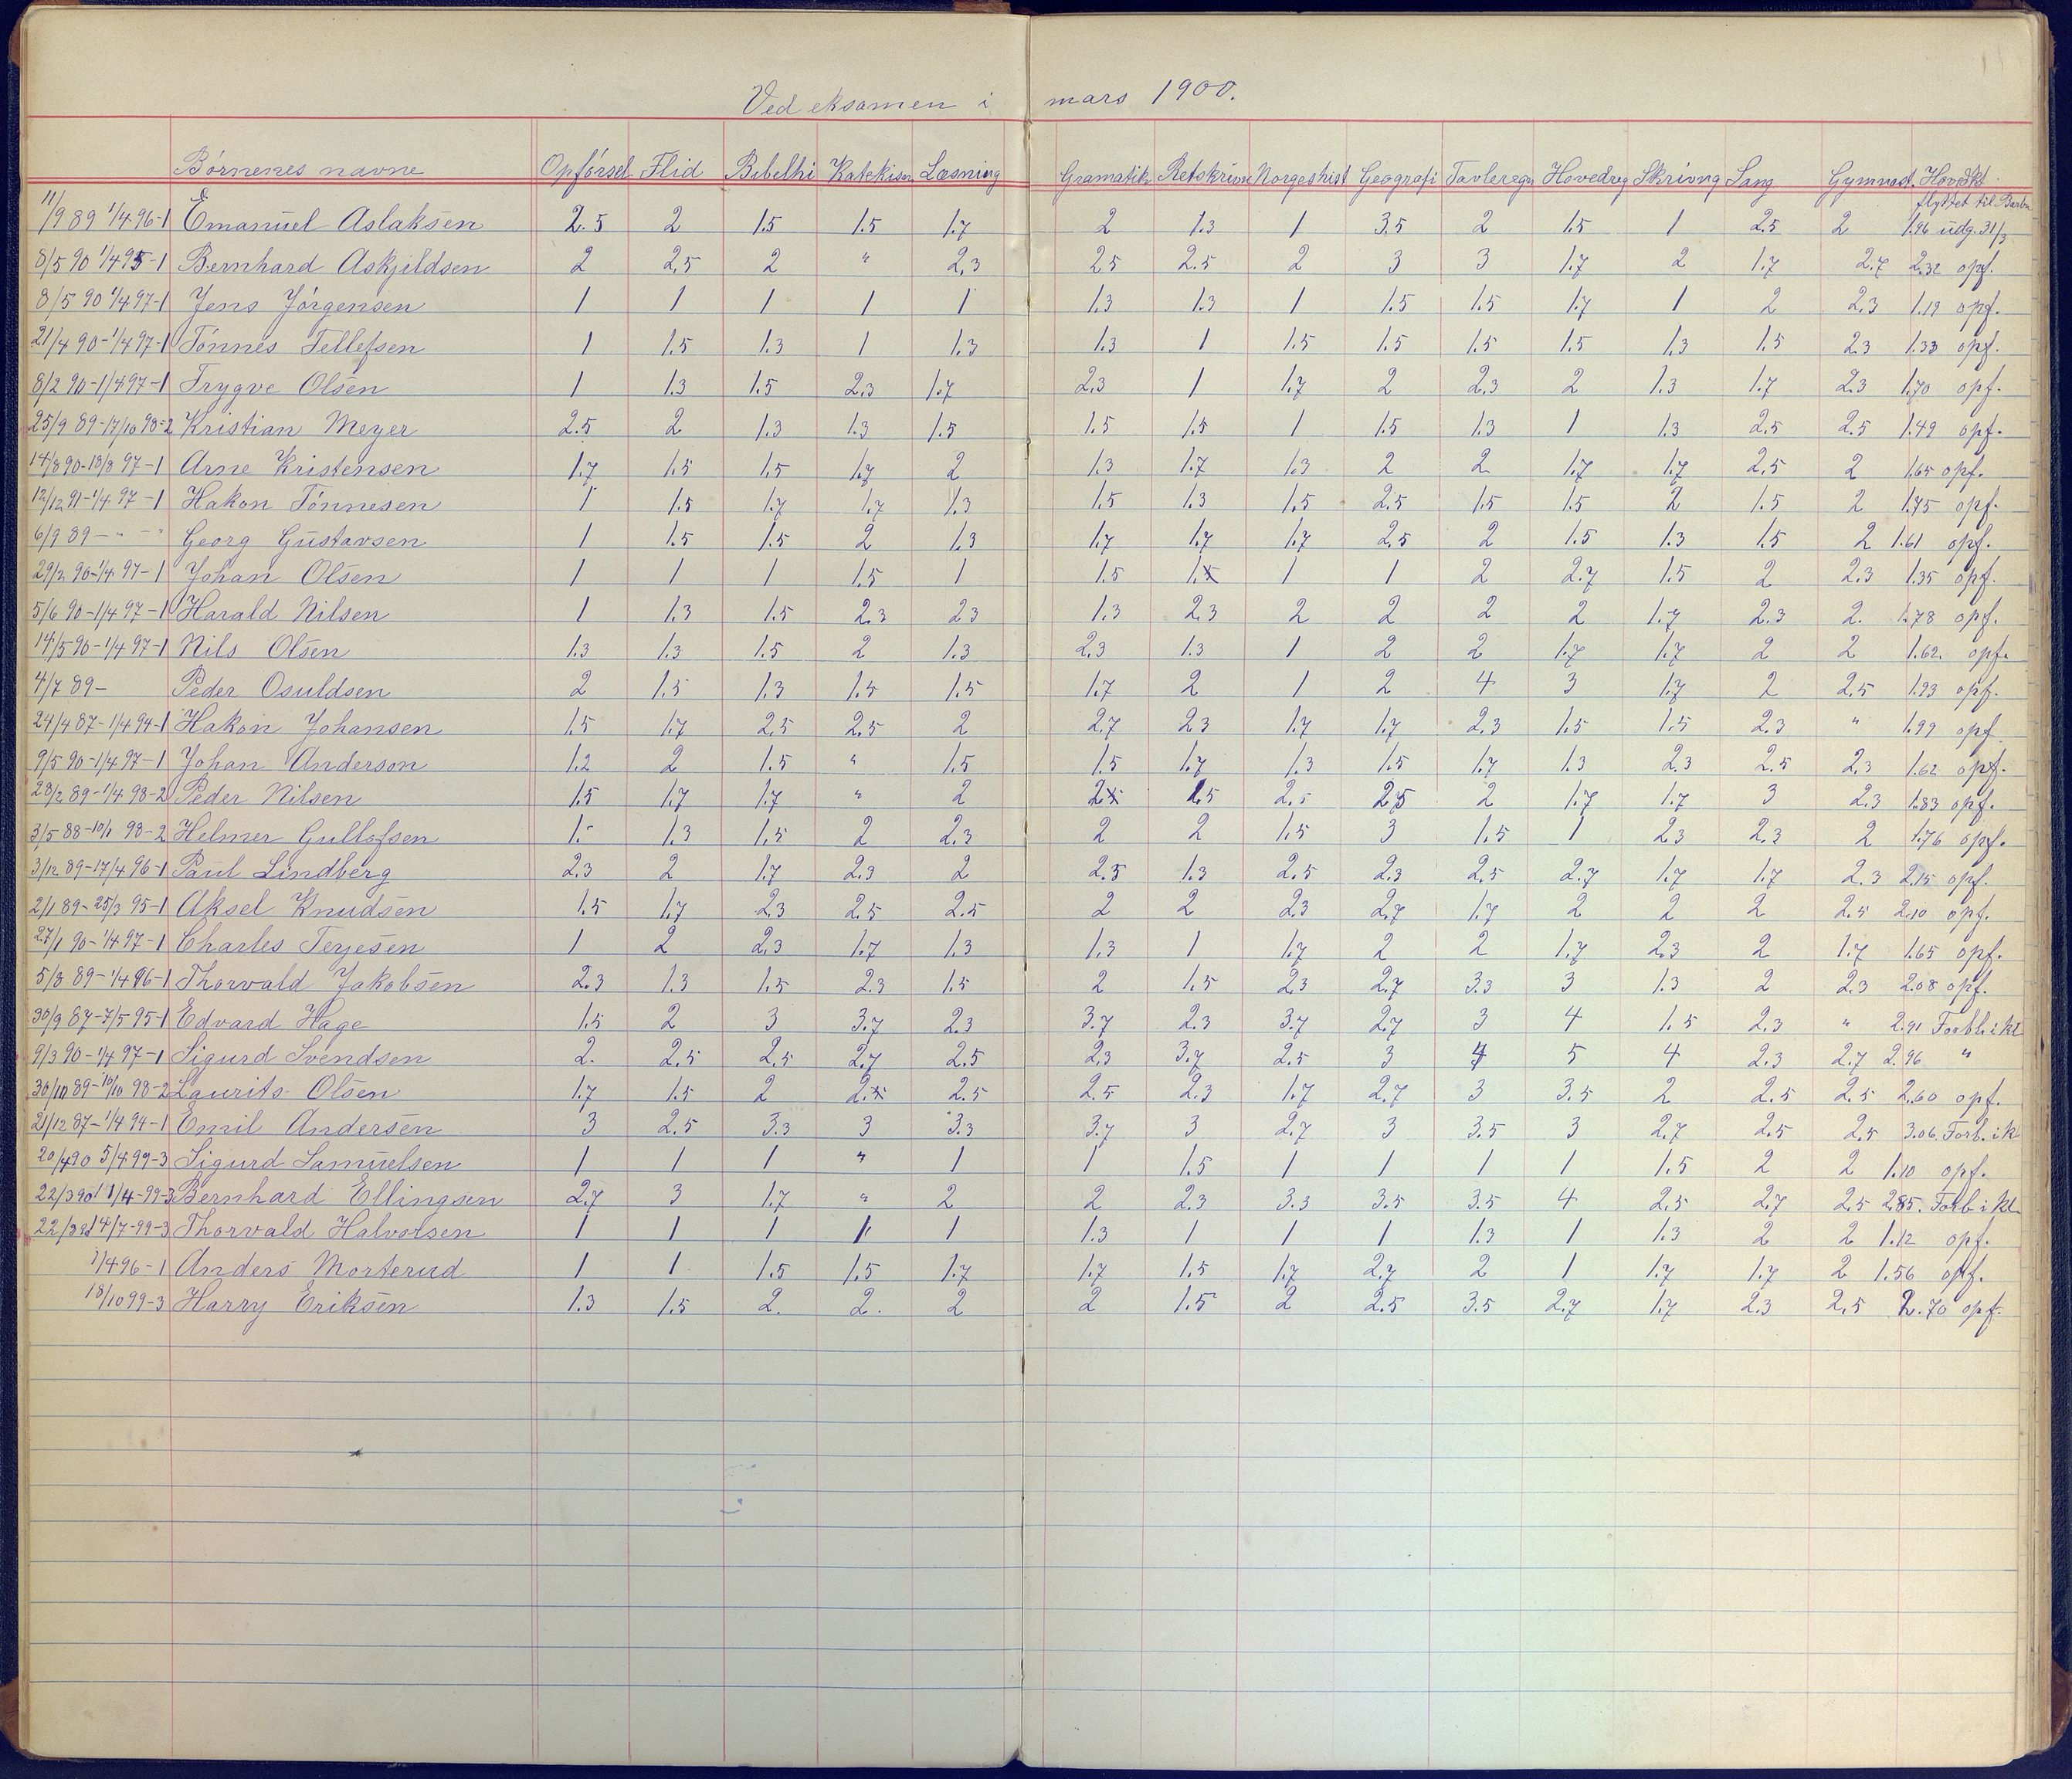 Ved eksamen i mars 1900.
Börnenes navne Opförsel Flid Bibelhi Katekism Læsning Gramatik Retskrivn Norgeshist Geografi Tavleregn Hovedreg Skrivng Sang Gymnast. Hovedkt
flyttet til Barbu
11/9 89 1/4 96-1 Emanuel Aslaksen 2.5 2 1.5 1.5 1.7 2 1.3 1 3.5 2 1.5 1 2.5 2 1.86 udg. 31/3
8/5 90 1/4 95-1 Bernhard Askjeldsen 2 2,5 2 " 2,3 2.5 2.5 2 3 3 1.7 2 1.7 2.7 2.32 opf.
8/5 90 1/4 97-1 Jens Jörgensen 1 1 1 1 1 1.3 1.3 1 1.5 1.5 1.7 1 2 2.3 1.19 opf.
21/4 90-1/4 97-1 Tönnes Tellefsen 1 1.5 1.3 1 1.3 1.3 1 1.5 1.5 1.5 1.5 1.3 1.5 2.3 1.33 opf.
8/2 90-1/4 97-1 Trygve Olsen 1 1.3 1.5 2.3 1.7 2.3 1 1.7 2 2.3 2 1.3 1.7 2.3 1.70 opf.
25/9 89-17/10 98-2 Kristian Meyer 2.5 2 1.3 1.3 1.5 1.5 1.5 1 1.5 1.3 1 1.3 2.5 2.5 1.49 opf.
14/8 90-18/8 97-1 Arne Kristensen 1.7 1.5 1.5 1.7 2 1.3 1.7 1.3 2 2 1.7 1.7 2.5 2 1.65 opf.
12/12 91-1/4 97-1 Hakon Tönnesen 1 1.5 1.7 1.7 1.3 1.5 1.3 1.5 2.5 1.5 1.5 2 1.5 2 1.75 opf.
6/9 89 - " - " Georg Gustavsen 1 1.5 1.5 2 1.3 1.7 1.7 1.7 2.5 2 1.5 1.3 1.5 2 1.61 opf.
29/2 90-1/4 97-1 Johan Olsen 1 1 1 1.5 1 1.5 1 1 2 2.7 1.5 2 2.3 1.35 opf.
5/6 90-1/4 97-1 Harald Nilsen 1 1.3 1.5 2.3 2.3 1.3 2.3 2 2 2 2 1.7 2.3 2. 1.78 opf.
14/5 90-1/4 97-1 Nils Olsen 1.3 1.3 1.5 2 1.3 2.3 1.3 1 2 2 1.7 1.7 2 2 1.62. opf.
4/7 89- Peder Osuldsen 2 1.5 1.3 1.5 1.5 1.7 2 1 2 4 3 1.7 2 2.5 1.93 opf.
24/4 87-1/4 94-1 Hakon Johansen 1.5 1.7 2.5 2.5 2 2.7 2.3 1.7 1.7 2.3 1.5 1.5 2.3 " 1.99 opf.
9/5 90-1/4 97-1 Johan Anderson 1.2 2 1.5 " 1.5 1.5 1.7 1.3 1.5 1.7 1.3 2.3 2.5 2.3 1.62 opf.
28/2 89-1/4 98-2 Peder Nilsen 1.5 1.7 1.7 " 2 2.5 2.5 2 1.7 1.7 3 2.3 1.83 opf.
3/5 88-10/1 98-2 Helmer Gullofsen 1.- 1.3 1.5 2 2.3 2 2 1.5 3 1.5 1 2.3 2.3 2 1.76 opf.
3/12 89-17/4 96-1 Paul Lindberg 2.3 2 1.7 2.3 2 2.5 1.3 2.5 2.3 2.5 2.7 1.7 1.7 2.3 2.15 opf.
2/1 89-25/3 95-1 Aksel Knudsen 1.5 1.7 2.3 2.5 2.5 2 2 2.3 2.7 1.7 2 2 2 2.5 2.10 opf.
27/1 90-1/4 97-1 Charles Terjesen 1 2 2.3 1.7 1.3 1.3 1 1.7 2 2 1.7 2.3 2 1.7 1.65 opf.
5/8 89-1/4 96-1 Thorvald Jakobsen 2.3 1.3 1.5 2.3 1.5 2 1.5 2.3 2.7 3.3 3 1.3 2 2.3 2.08 opf.
30/9 87-7/5 95-1 Edvard Hage 1.5 2 3 3.7 2.3 3.7 2.3 3.7 2.7 3 4 1.5 2.3 " 2.91 Forbl. i kl
9/3 90-1/4 97-1 Sigurd Svendsen 2. 2.5 2.5 2.7 2.5 2.3 3.7 2.5 3 4 5 4 2.3 2.7 2.96 "
30/10 89-10/10 98-2 Laurits Olsen 1.7 1.5 2 2.5 2.5 2.3 1.7 2.7 3 3.5 2 2.5 2.5 2.60 opf.
21/12 87-1/4 94-1 Emil Andersen 3 2.5 3.3 3 3.3 3.7 3 2.7 3 3.5 3 2.7 2.5 2.5 3.06. Forb. i k
20/4 90 5/4 99-3 Sigurd Samuelsen 1 1 1 " 1 1 1.5 1 1 1 1 1.5 2 2 1.10 opf.
22/3 90 1/4-99-3 Bernhard Ellingsen 2.7 3 1.7 " 2 2 2.3 3.3 3.5 3.5 4 2.5 2.7 2.5 2.85. Forb i kl
22/3 14/7-99-3 Thorvald Halvorsen 1 1 1 1 1 1.3 1 1 1 1.3 1 1.3 2 2 1.12 opf.
1/4 96-1 Anders Morterud 1 1 1.5 1.5 1.7 1.7 1.5 1.7 2.7 2 1 1.7 1.7 2 1.56 opf.
18/10 99-3 Harry Eriksen 1.3 1.5 2. 2. 2 2 1.5 2 2.5 3.5 2.7 1.7 2.3 2.5 2.70 opf.